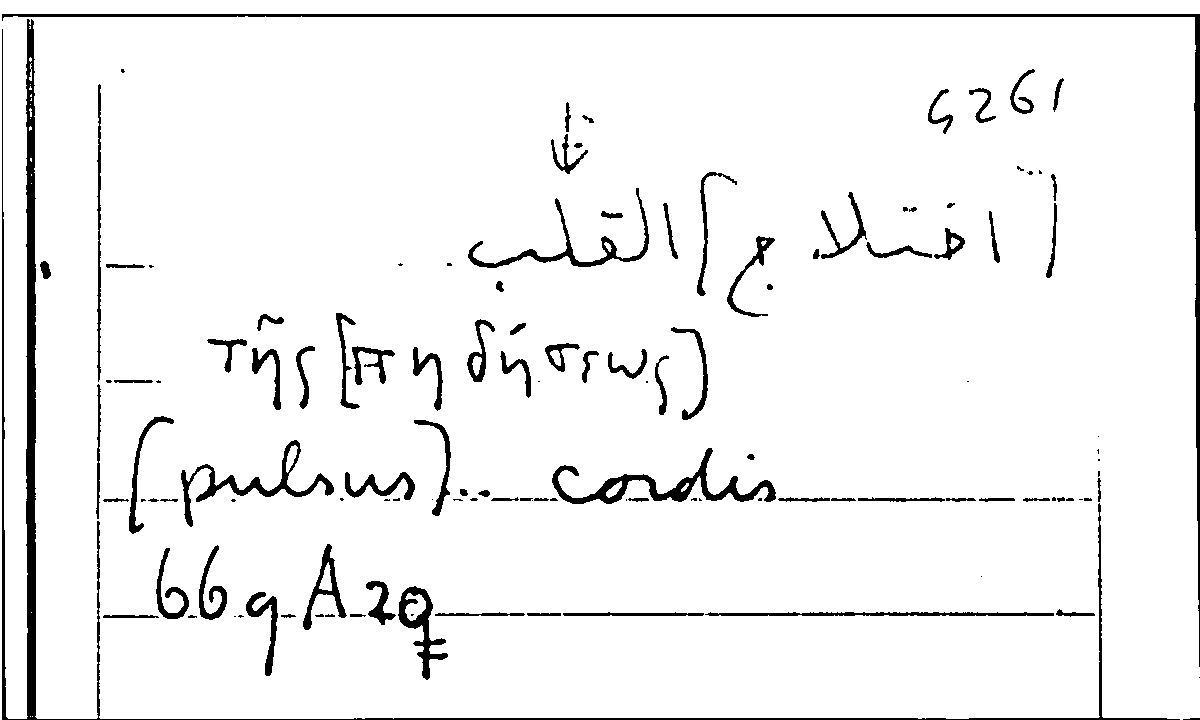 [اختلاج] القلب
τῆς [πηδήσεως]
[pulsus]... cordis
669A20